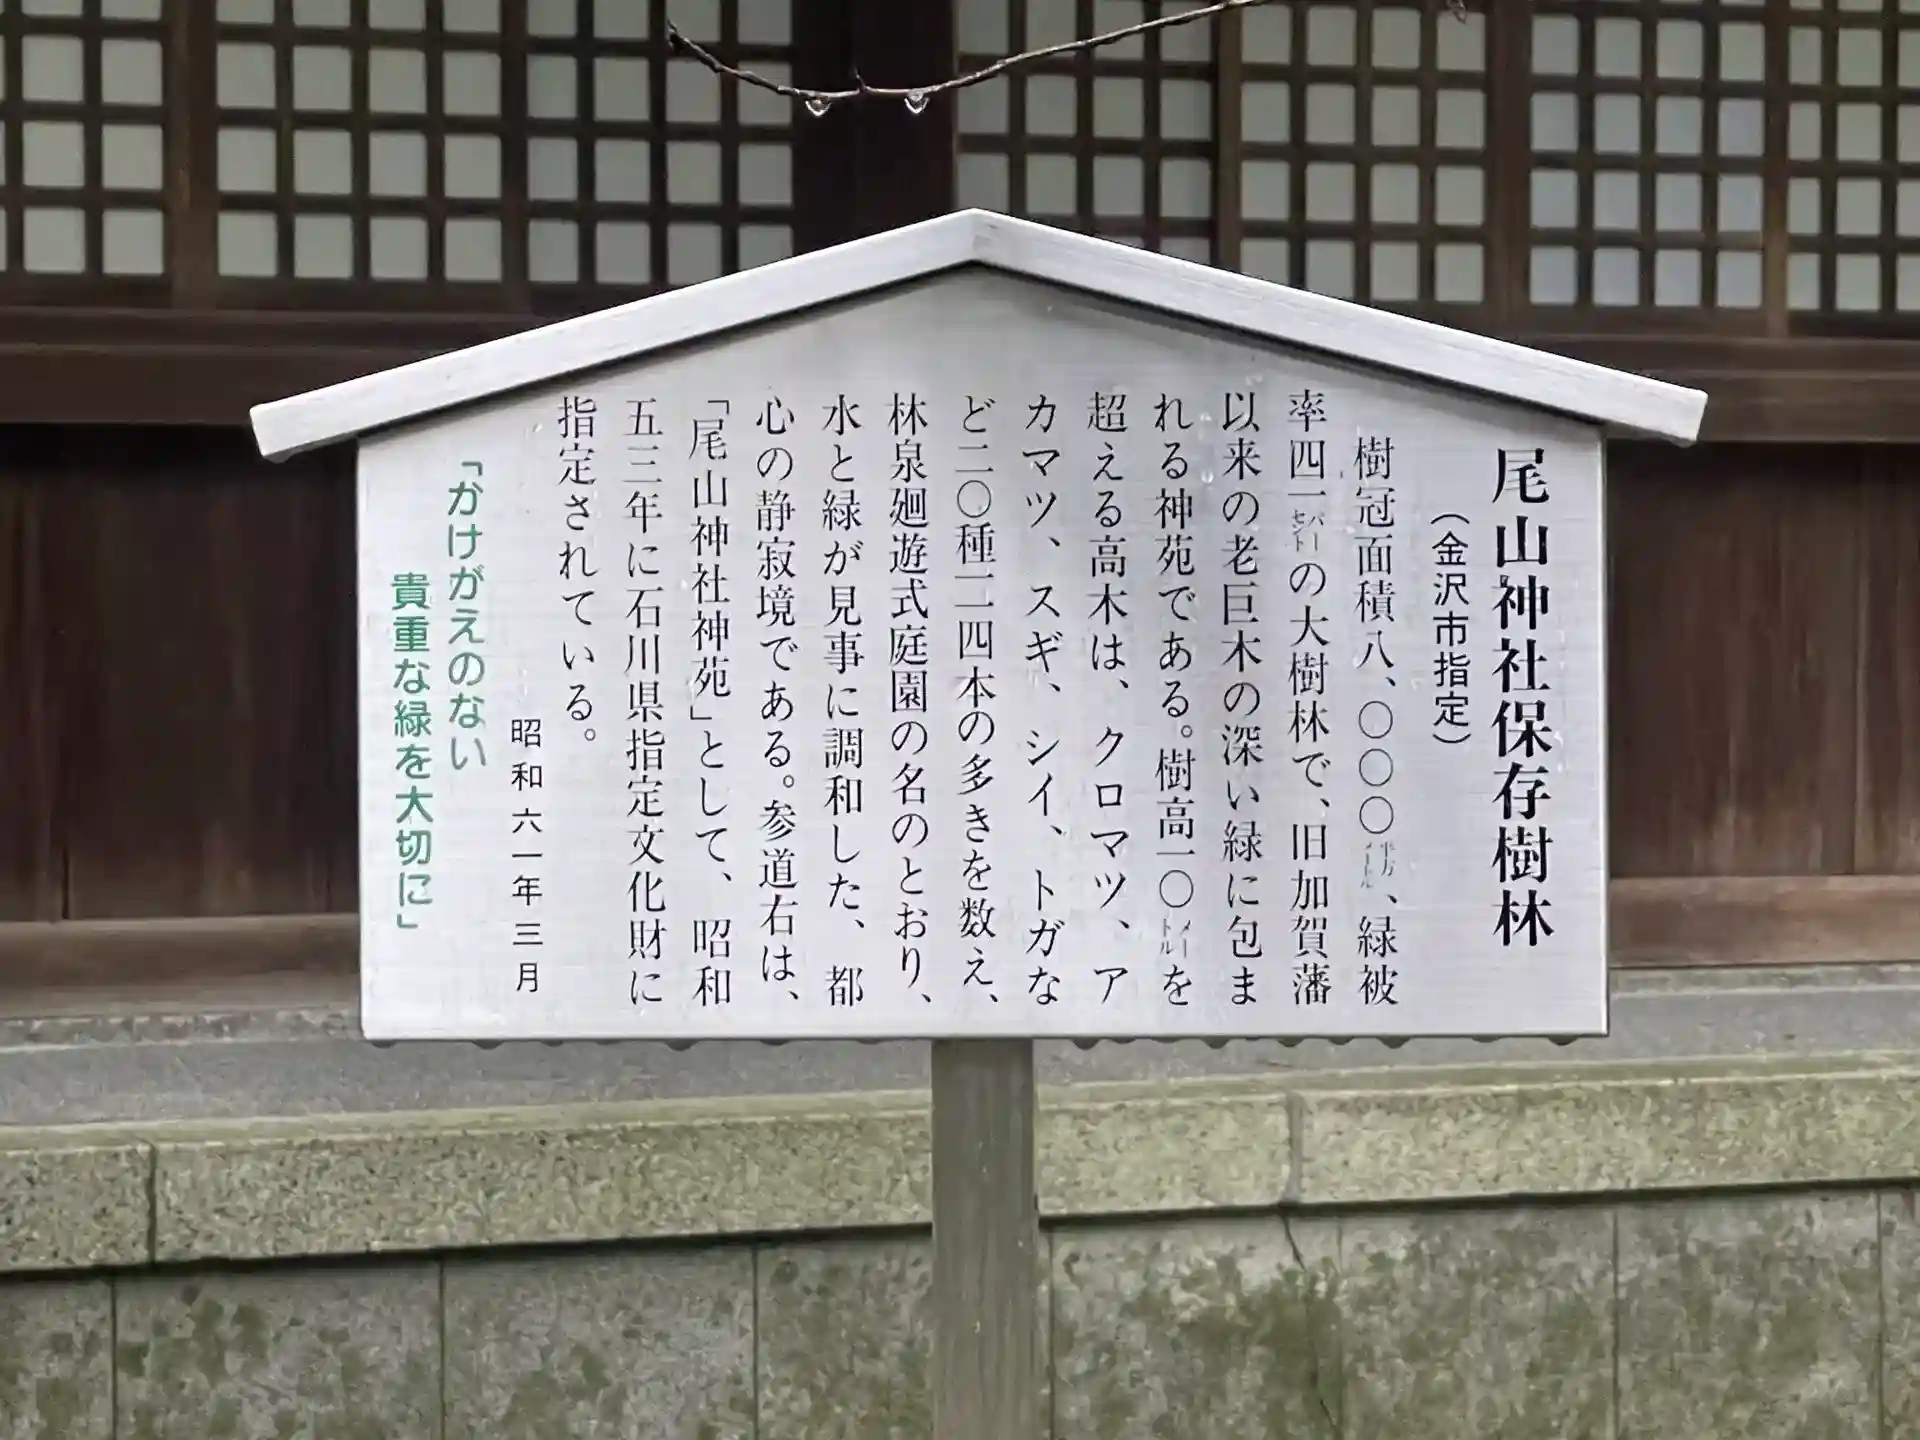 尾山神社保存樹林
(金沢市指定)
樹冠面積八、〇〇〇平方メートル、緑被
率四一パーセントの大樹林で、旧加賀藩
以来の老巨木の深い緑に包ま
れる神苑である。樹高一〇メートルを
超える高木は、クロマツ、ア
カマツ、スギ、シイ、トガな
ど二〇種一二四本の多きを数え、
林泉廻遊式庭園の名のとおり、
水と緑が見事に調和した、都
心の静寂境である。参道右は、
「尾山神社神苑」として、昭和
五三年に石川県指定文化財に
指定されている。
昭和六一年三月
「かけがえのない
貴重な緑を大切に」